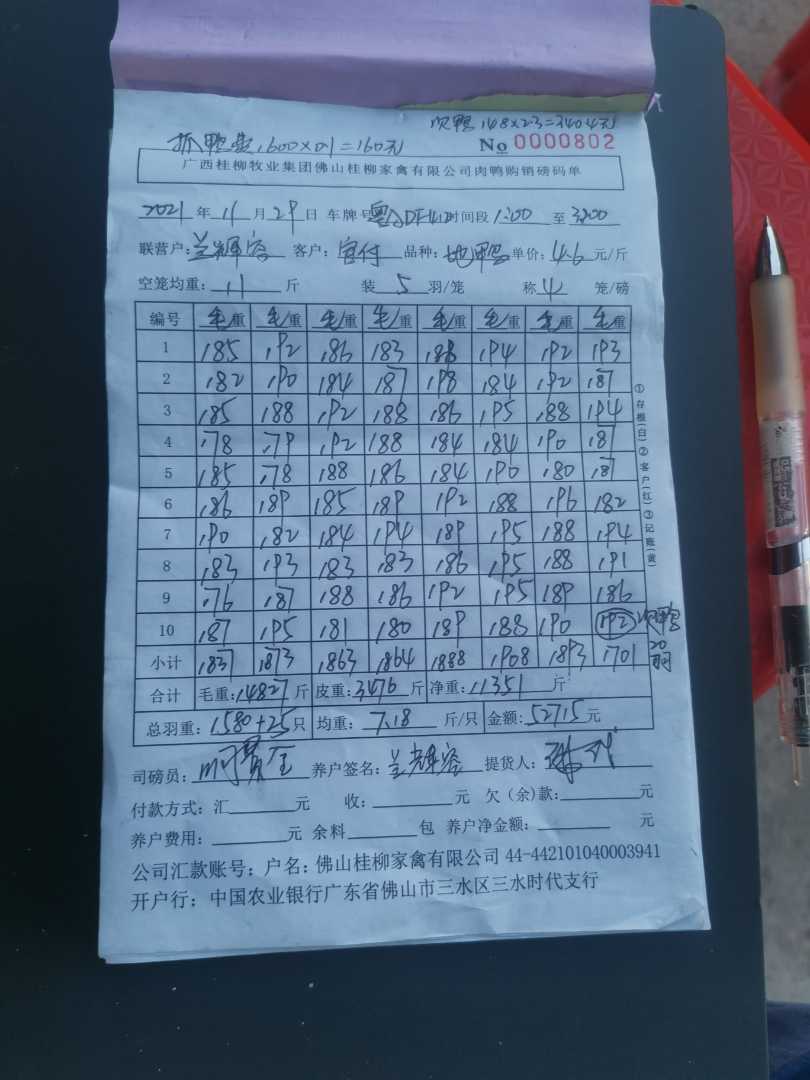 次鸭 148×2.3=340.4元
抓鸭费 1600×0.1=160元
No 0000802
广西桂柳牧业集团佛山桂柳家禽有限公司肉鸭购销磅码单
2021 年 11 月 29 日 车牌号 时间段 1:00 至 3:00
联营户: 兰辉容 客户: 官付 品种: 地鸭 单价: 4.6 元/斤
空笼均重: 11 斤 装 5 羽/笼 称 4 笼/磅
编号 毛重 毛重 毛重 毛重 毛重 毛重 毛重 毛重
1 185 192 186 183 188 194 192 193
2 182 190 184 187 198 184 192 187
3 185 188 192 188 186 195 188 194
4 178 179 192 188 184 184 190 187
5 185 178 188 186 184 190 180 187
6 186 189 185 189 192 188 196 182
7 190 182 184 194 189 195 188 194
8 183 193 183 183 186 195 188 191
9 176 187 188 186 192 195 189 186
10 187 195 181 180 189 188 190 192 次鸭
20羽
小计 1837 1873 1863 1864 1888 1908 1893 1701
合计 毛重: 14827 斤 皮重: 3476 斤 净重: 11351 斤
总羽重: 1580+25 只 均重: 7.18 斤/只 金额: 52715 元
司磅员: 养户签名: 兰辉容 提货人:
付款方式: 汇 元 收: 元 欠(余)款: 元
养户费用: 元 余料 包 养户净金额: 元
公司汇款账号: 户名: 佛山桂柳家禽有限公司 44-442101040003941
开户行: 中国农业银行广东省佛山市三水区三水时代支行
①存根(白)②客户(红)③记账(黄)